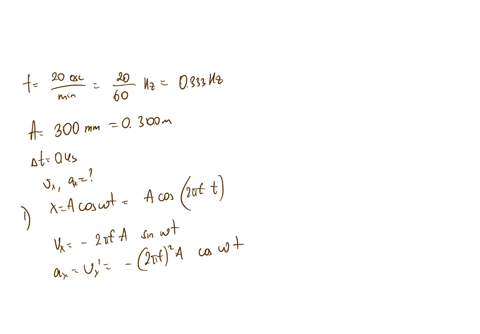 f= 20 osc/min = 20/60 Hz = 0.333 Hz
A= 300 mm = 0.300 m
Δt= 0.4s
υₓ, aₓ=?
1) x=A cos ωt = A cos (2πf t)
υₓ= - 2πf A sin ωt
aₓ = υₓ' = - (2πf)² A cos ωt